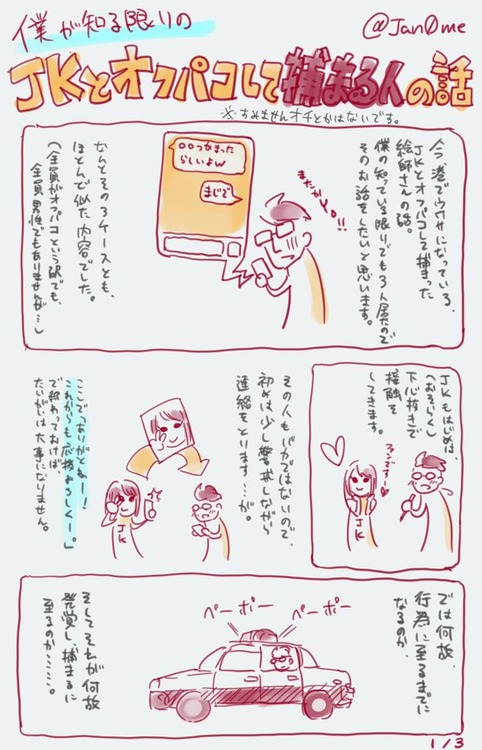 僕が知る限りの
@Jan0me
JKとオフパコして捕まる人の話
※すみませんオチとかはないです。
今、港でウワサになっている、
JKとオフパコして捕まった
絵師さんの話。
僕の知っている限りでも3人居たので
そのお話をしたいと思います。
またかYO!!
○○つかまった
らしいよw
まじで
なんとその3ケースとも、
ほとんど似た内容でした。
(全員がオフパコという訳でも、
全員男性でもありませんが…)
JKもはじめは、
(おそらく)
下心抜きで
接触を
してきます。
ファンですー!
JK
その人もバカではないので、
初めは少し警戒しながら
連絡をとります…が。
JK
ここで「ありがとなー!
これからも応援よろしくー。」
で終わっておけば、
たいがいは大事になりません。
では何故、
行為に至るまでに
なるのか、
ペーポー
ペーポー
そしてそれが何故
発覚し、捕まるに
至るのか……。
1/3